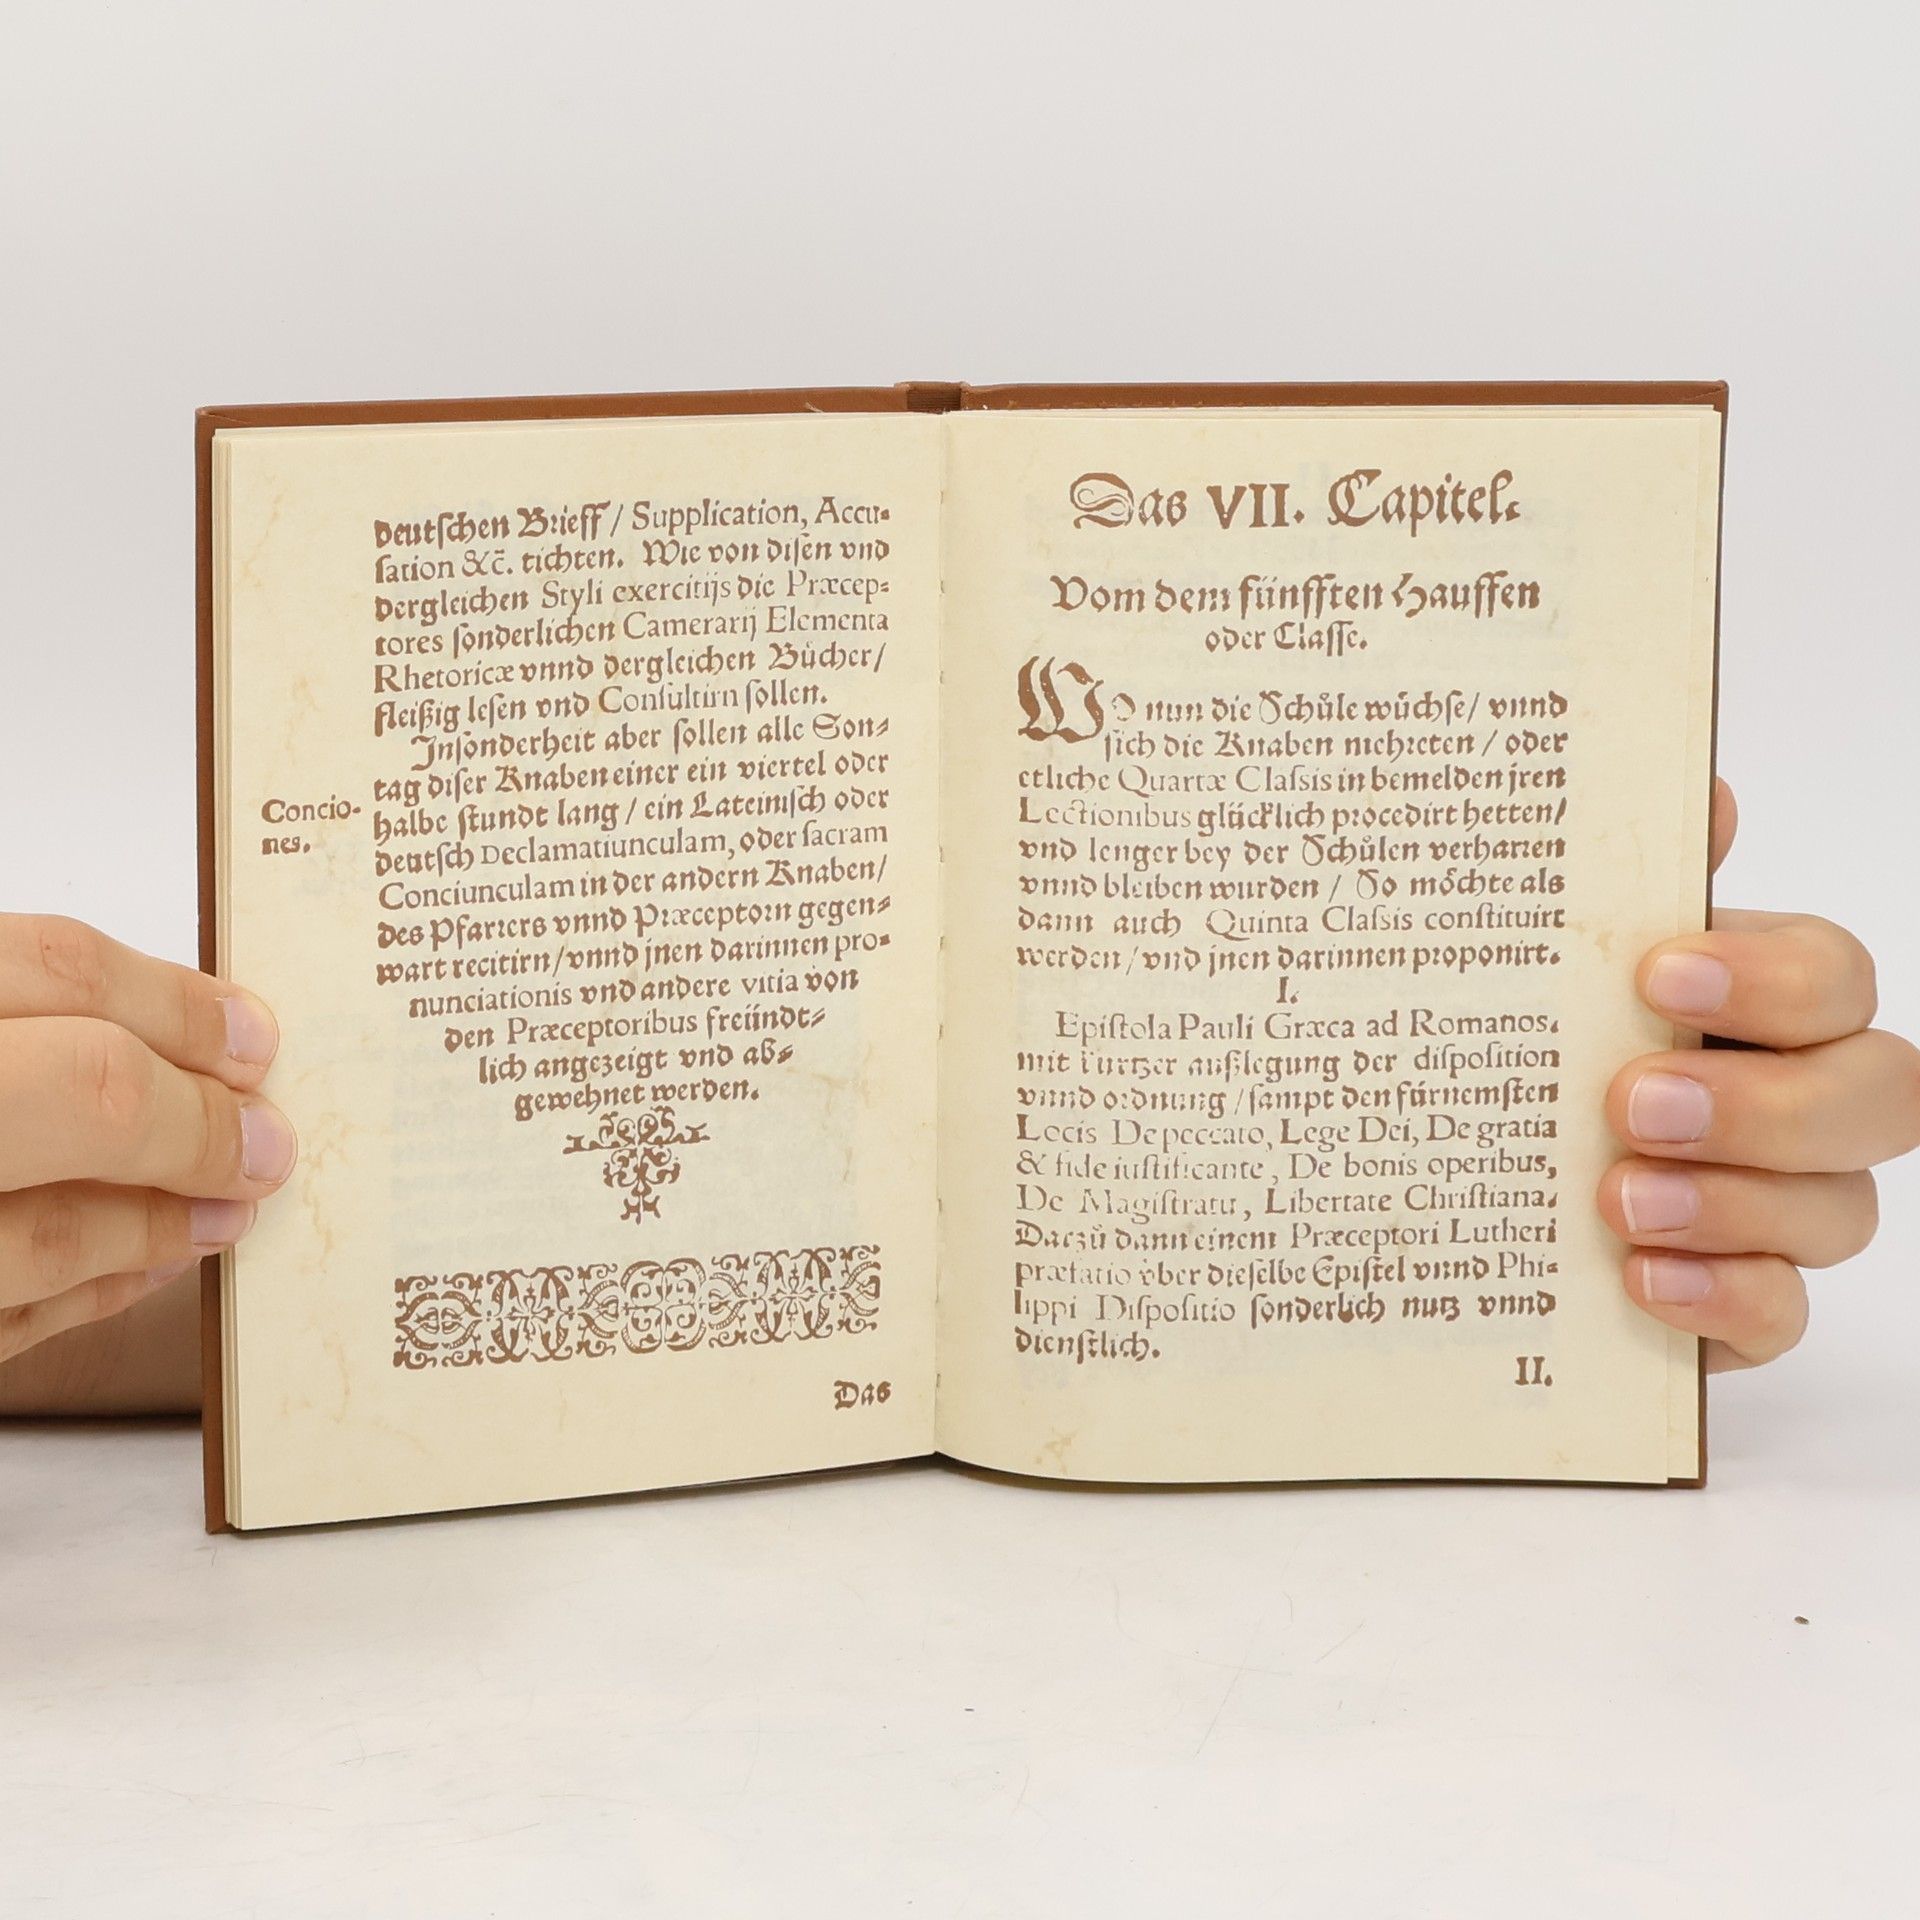 deutſchen Brieff / Supplication, Accu-
ſation &c̃. tichten. Wie von diſen vnd
dergleichen Styli exercitijs die Præcep-
tores ſonderlichen Camerarij Elementa
Rhetoricæ vnnd dergleichen Bůcher /
fleißig leſen vnd Conſultirn ſollen.
Inſonderheit aber ſollen alle Son-
tag diſer Knaben einer ein viertel oder
halbe ſtundt lang / ein Lateiniſch oder
deutſch Declamatiunculam, oder ſacram
Conciunculam in der andern Knaben /
des Pfarrers vnnd Præceptorn gegen-
wart recitirn / vnnd jnen darinnen pro-
nunciationis vnd andere vitia von
den Præceptoribus freündt-
lich angezeigt vnd ab-
gewehnet werden.
Concio-
nes.
Das
Das VII. Capitel.
Vom dem fünfften Hauffen
oder Claſſe.
WO nun die Schůle wüchſe / vnnd
ſich die Knaben mehreten / oder
etliche Quartæ Claſsis in bemelden jren
Lectionibus glücklich procedirt hetten /
vnd lenger bey der Schůlen verharren
vnnd bleiben wurden / So möchte als
dann auch Quinta Claſsis conſtituirt
werden / vnd jnen darinnen proponirt.
I.
Epiſtola Pauli Græca ad Romanos.
mit kurtzer außlegung der diſpoſition
vnnd ordnung / ſampt den fürnemſten
Locis De peccato, Lege Dei, De gratia
& fide iuſtificante, De bonis operibus,
De Magiſtratu, Libertate Chriſtiana.
Darzů dann einem Præceptori Lutheri
præfatio vber dieſelbe Epiſtel vnnd Phi-
lippi Diſpoſitio ſonderlich nutz vnnd
dienſtlich.
II.